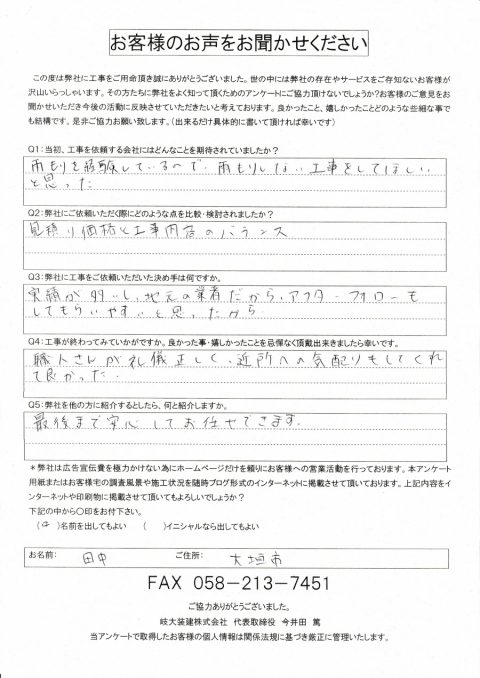 お客様のお声をお聞かせください
この度は弊社に工事をご用命頂き誠にありがとうございました。世の中には弊社の存在やサービスをご存知ないお客様が
沢山いらっしゃいます。その方たちに弊社をよく知って頂くためのアンケートにご協力頂けないでしょうか？お客様のご意見をお
聞かせいただき今後の活動に反映させていただきたいと考えております。良かったこと、嬉しかったことどのような些細な事で
も結構です。是非ご協力お願い致します。（出来るだけ具体的に書いて頂ければ幸いです）
Q1：当初、工事を依頼する会社にはどんなことを期待されていましたか？
雨もりを経験しているので、雨もりしない工事をしてほしい
と思った
Q2：弊社にご依頼いただく際にどのような点を比較・検討されましたか？
見積り価格と工事内容のバランス
Q3：弊社に工事をご依頼いただいた決め手は何ですか。
実績が多いし、地元の業者だから、アフターフォローも
してもらいやすいと思ったから
Q4：工事が終わってみていかがですか。良かった事・嬉しかったことを忌憚なく頂戴出来ましたら幸いです。
職人さんが礼儀正しく、近所への気配りもしてくれ
て良かった．
Q5：弊社を他の方に紹介するとしたら、何と紹介しますか。
最後まで安心してお任せできます．
＊弊社は広告宣伝費を極力かけない為にホームページだけを頼りにお客様への営業活動を行っております。本アンケート
用紙またはお客様宅の調査風景や施工状況を随時ブログ形式のインターネットに掲載させて頂いております。上記内容をイ
ンターネットや印刷物に掲載させて頂いてもよろしいでしょうか？
下記の中から〇印をお付下さい。
（○）名前を出してもよい　（　）イニシャルなら出してもよい
お名前：　田中　ご住所：　大垣市
FAX 058－213－7451
ご協力ありがとうございました。
岐大装建株式会社　代表取締役　今井田　篤
当アンケートで取得したお客様の個人情報は関係法規に基づき厳正に管理いたします。